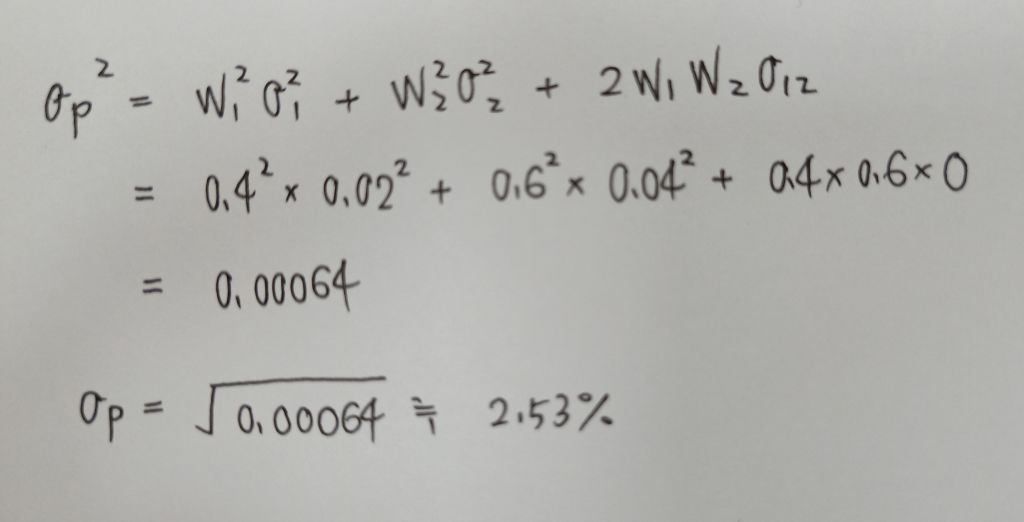 σp² = W₁²σ₁² + W₂²σ₂² + 2W₁W₂σ₁₂
= 0.4² × 0.02² + 0.6² × 0.04² + 0.4 × 0.6 × 0
= 0.00064
σp = √0.00064 ≒ 2.53%